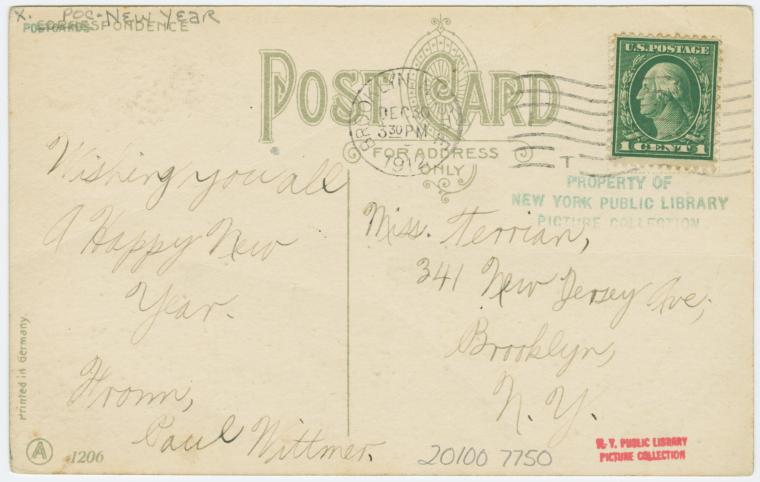 X. POC-NEW YEAR
POSTCARDS
CORRESPONDENCE
POST CARD
FOR ADDRESS
ONLY
BROOKLYN
DEC 30
3 30 PM
U.S. POSTAGE
1 CENT 1
T
PROPERTY OF
NEW YORK PUBLIC LIBRARY
PICTURE COLLECTION
Wishing you all
A Happy New
Year.
From,
Paul Wittmer.
Miss. Terrian,
341 New Jersey Ave,
Brooklyn,
N. Y.
Printed in Germany.
A 1206
20100 7750
N. Y. PUBLIC LIBRARY
PICTURE COLLECTION